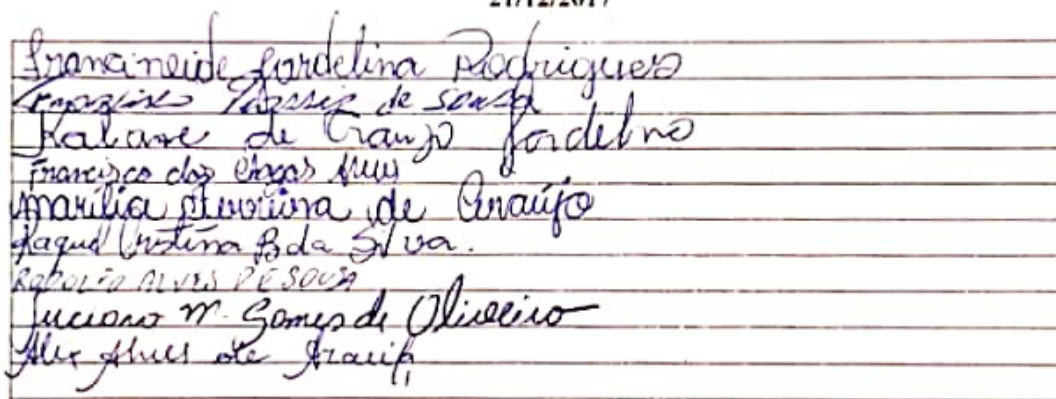 21/12/2017
Francineide Jordelina Rodrigues
de Sousa
de Araujo Jordelino
Francisco das Chagas Alves
Marília Ferreira de Araújo
Raquel Cristina B da Silva.
RODOLFO ALVES DE SOUSA
Luciano M. Gomes de Oliveira
Alex Alves de Araujo